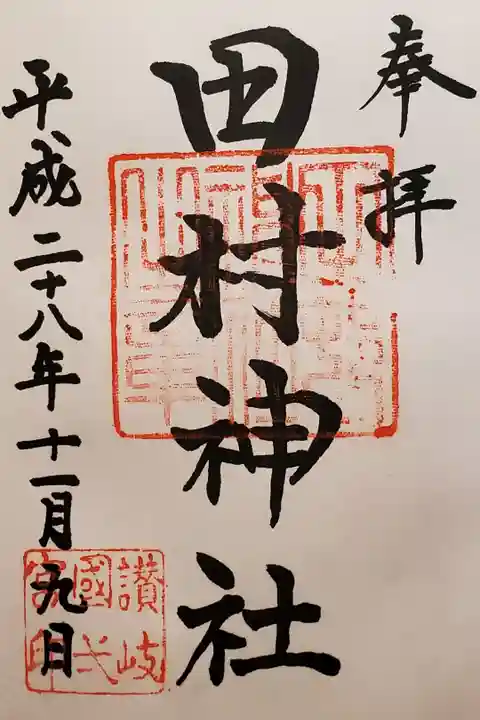 奉拝
田村神社
平成二十八年十一月九日
讃岐
國弌
宮印